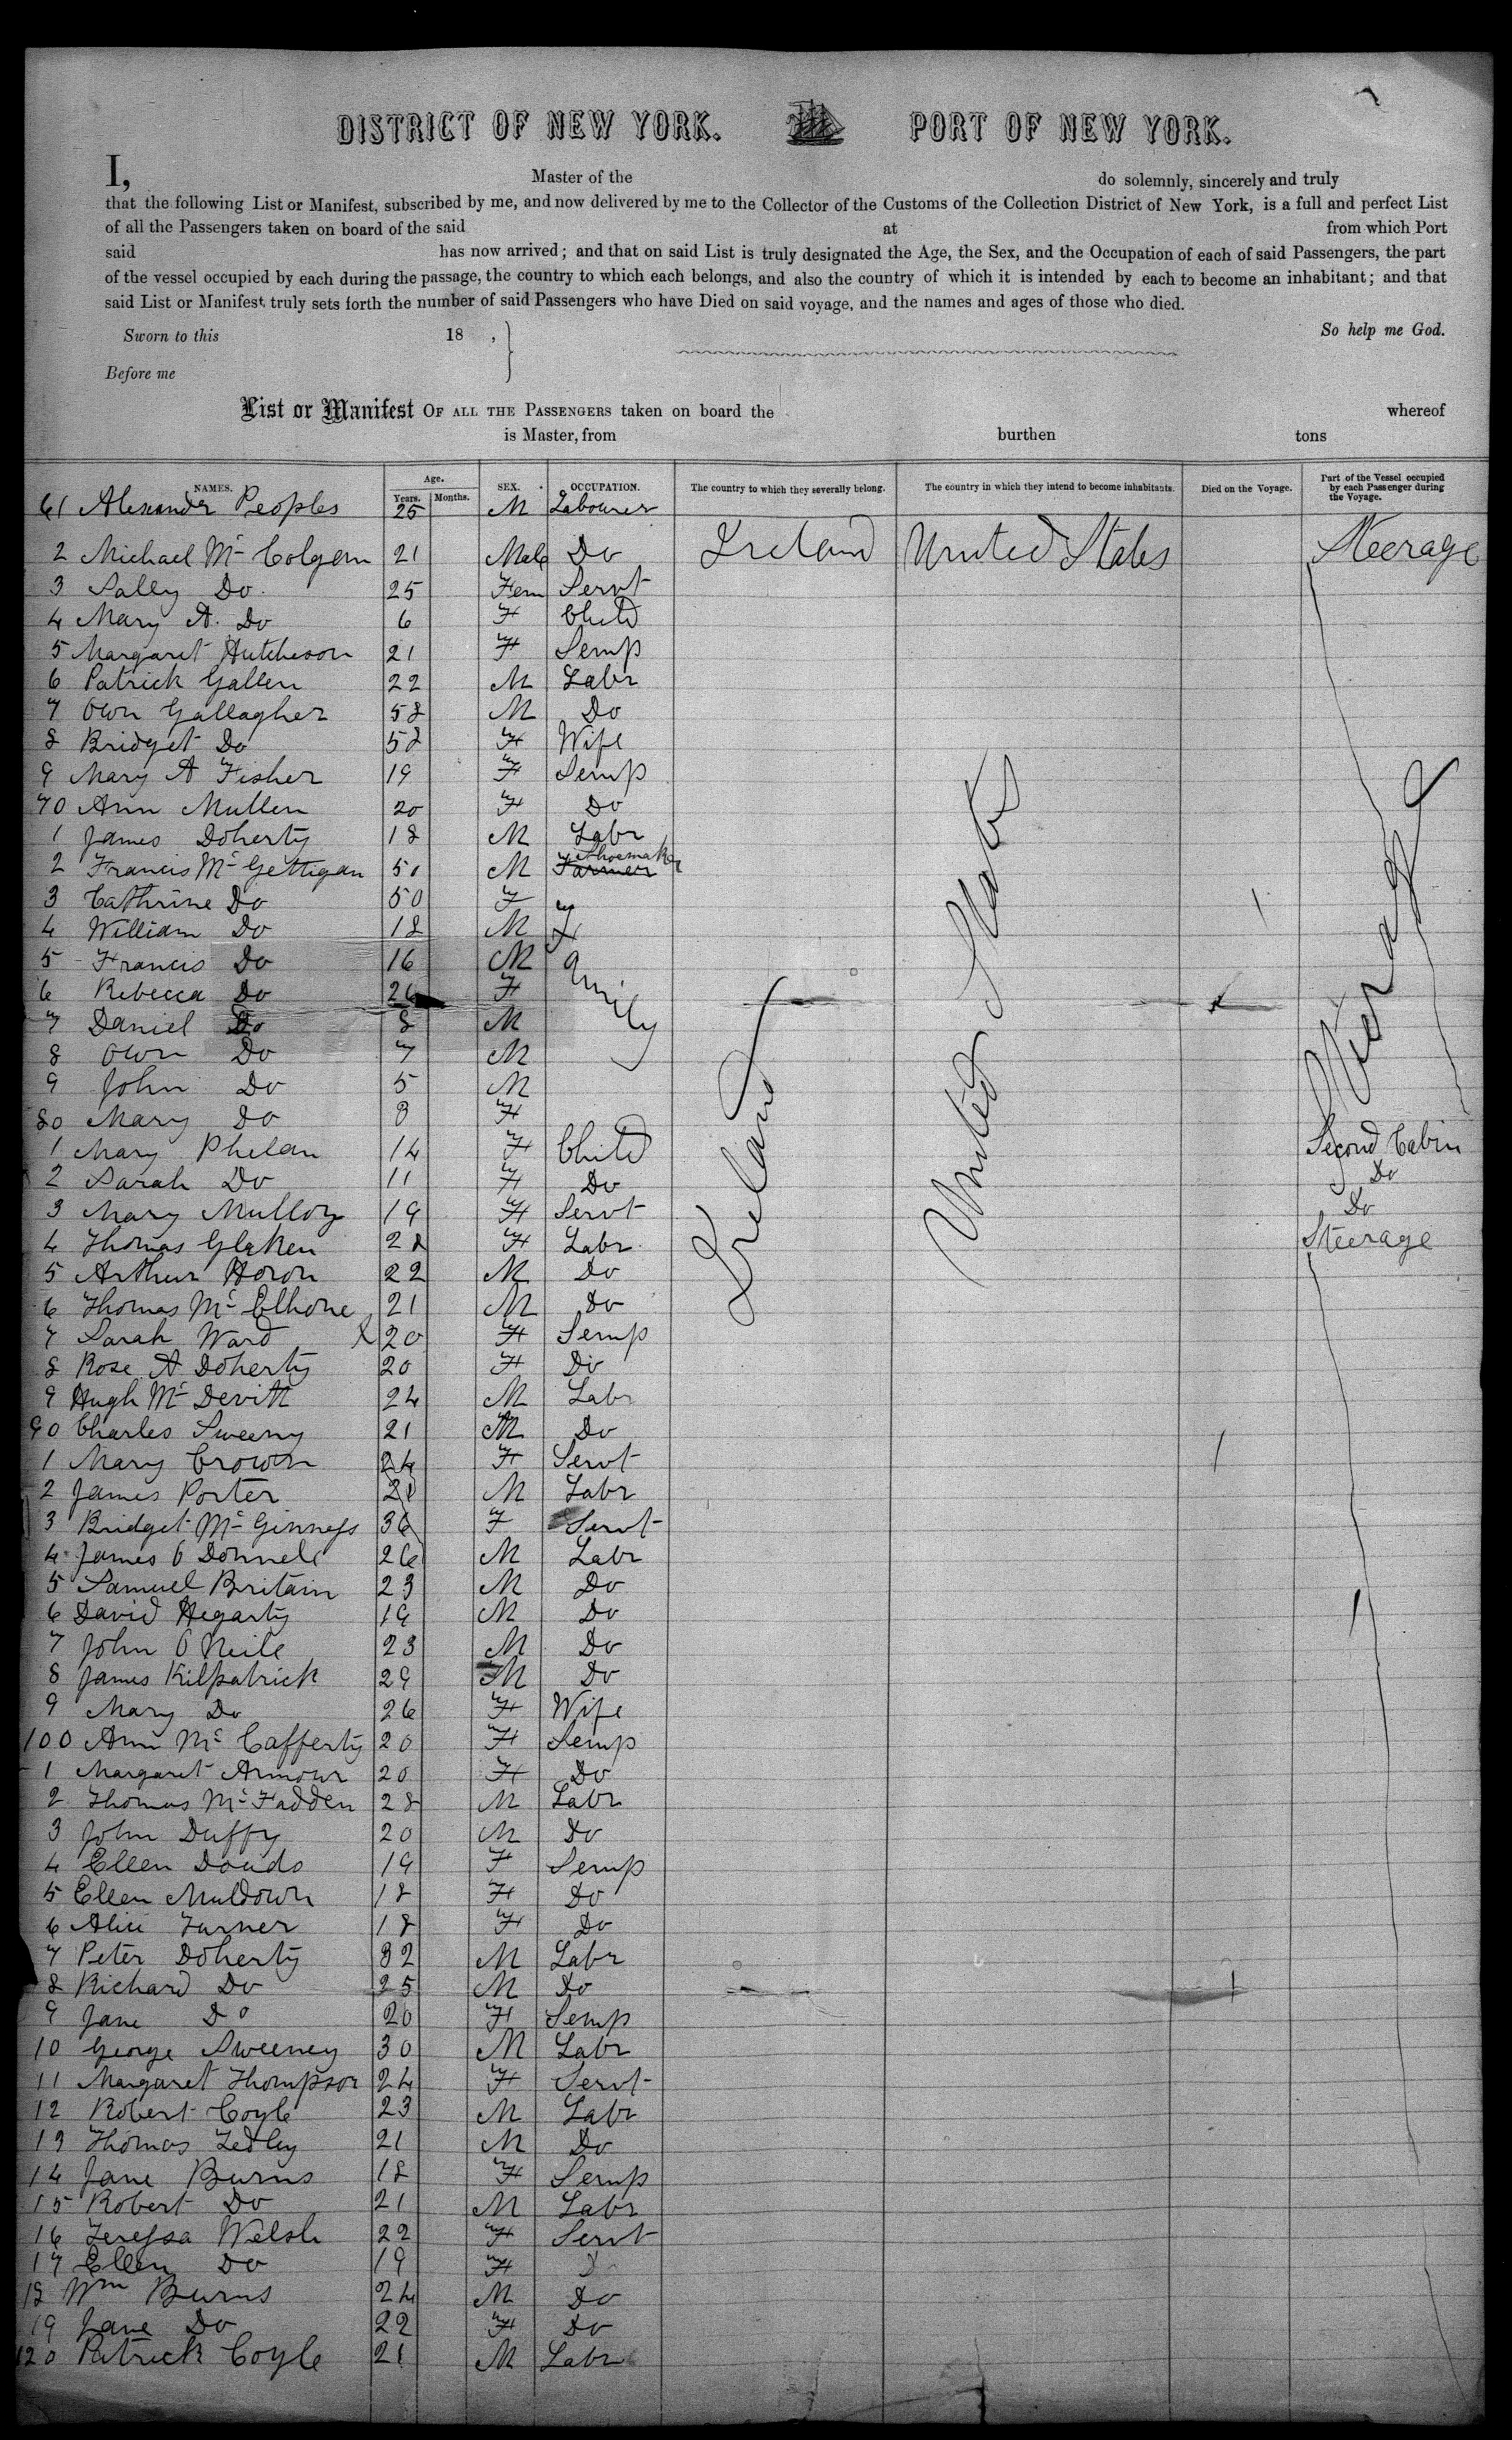 DISTRICT OF NEW YORK. PORT OF NEW YORK.
I, Master of the do solemnly, sincerely and truly
that the following List or Manifest, subscribed by me, and now delivered by me to the Collector of the Customs of the Collection District of New York, is a full and perfect List
of all the Passengers taken on board of the said at from which Port
said has now arrived; and that on said List is truly designated the Age, the Sex, and the Occupation of each of said Passengers, the part
of the vessel occupied by each during the passage, the country to which each belongs, and also the country of which it is intended by each to become an inhabitant; and that
said List or Manifest truly sets forth the number of said Passengers who have Died on said voyage, and the names and ages of those who died.
Sworn to this 18 , So help me God.
Before me
List or Manifest OF ALL THE PASSENGERS taken on board the whereof
is Master, from burthen tons
NAMES. Age. Years. Months. SEX. OCCUPATION. The country to which they severally belong. The country in which they intend to become inhabitants. Died on the Voyage. Part of the Vessel occupied by each Passenger during the Voyage.
61 Alexander Peoples 25 M Labourer
2 Michael Mc Colgan 21 Male Do Ireland United States Steerage
3 Sally Do 25 Fem Servt
4 Mary A. Do 6 F Child
5 Margaret Hutcheson 21 F Semp
6 Patrick Gallen 22 M Labr
7 Own Gallagher 58 M Do
8 Bridget Do 58 F Wife
9 Mary A Fisher 19 F Semp
70 Ann Mullen 20 F Do
1 James Doherty 18 M Labr
2 Francis Mc Gettigan 50 M Farmer Shoemaker
3 Cathrine Do 50 F Family
4 William Do 18 M
5 Francis Do 16 M
6 Rebecca Do 26 F
7 Daniel Do 8 M
8 Own Do 7 M
9 John Do 5 M
80 Mary Do 3 F
Ireland United States Steerage
1 Mary Phelan 14 F Child Second Cabin
2 Sarah Do 11 F Do Do
3 Mary Mulloy 19 F Servt Do
4 Thomas Glaken 28 F Labr Steerage
5 Arthur Horon 22 M Do
6 Thomas Mc Elhone 21 M Do
7 Sarah Ward 20 F Semp
8 Rose A Doherty 20 F Do
9 Hugh Mc Devitt 24 M Labr
90 Charles Sweeny 21 M Do
1 Mary Crown 24 F Servt
2 James Porter 21 M Labr
3 Bridget Mc Ginness 36 F Servt
4 James O Donnell 26 M Labr
5 Samuel Britain 23 M Do
6 David Hegarty 19 M Do
7 John O Neile 23 M Do
8 James Kilpatrick 29 M Do
9 Mary Do 26 F Wife
100 Ann Mc Cafferty 20 F Semp
1 Margaret Armour 20 F Do
2 Thomas Mc Fadden 28 M Labr
3 John Duffy 20 M Do
4 Ellen Douds 19 F Semp
5 Ellen Muldown 18 F Do
6 Alice Turner 18 F Do
7 Peter Doherty 32 M Labr
8 Richard Do 25 M Do
9 Jane Do 20 F Semp
10 George Sweeney 30 M Labr
11 Margaret Thompson 24 F Servt
12 Robert Coyle 23 M Labr
13 Thomas Ledley 21 M Do
14 Jane Burns 18 F Semp
15 Robert Do 21 M Labr
16 Teressa Welsh 22 F Servt
17 Ellen Do 19 F D
18 Wm Burns 24 M Do
19 Jane Do 22 F Do
120 Patrick Coyle 21 M Labr